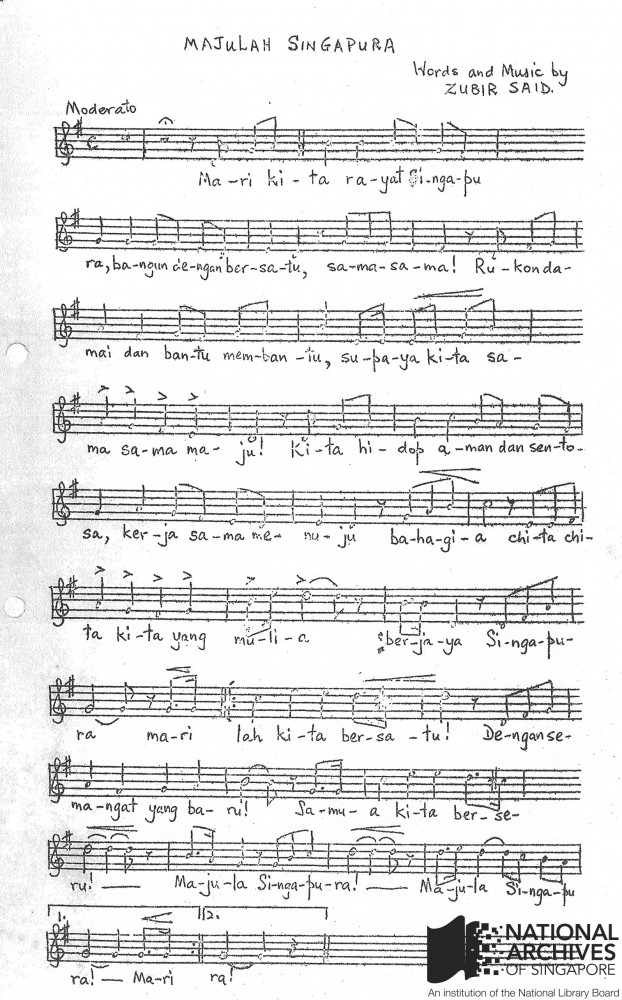 MAJULAH SINGAPURA
Words and Music by
ZUBIR SAID.
Moderato
Ma-ri ki-ta ra-yat Si-nga-pu
ra, ba-ngun de-ngan ber-sa-tu, sa-ma-sa-ma! Ru-konda-
mai dan ban-tu mem-ban-tu, su-pa-ya ki-ta sa-
ma sa-ma ma-ju! Ki-ta hi-dop a-man dan sen-to-
sa, ker-ja sa-ma me-nu-ju ba-ha-gi-a chi-ta chi-
ta ki-ta yang mu-li-a ber-ja-ya Si-nga-pu-
ra ma-ri lah ki-ta ber-sa-tu! De-ngan se-
ma-ngat yang ba-ru! Sa-mu-a ki-ta ber-se-
ru! — Ma-ju-la Si-nga-pu-ra! — Ma-ju-la Si-nga-pu
1. 2.
ra! — Ma-ri ra!
NATIONAL
ARCHIVES
OF SINGAPORE
An institution of the National Library Board